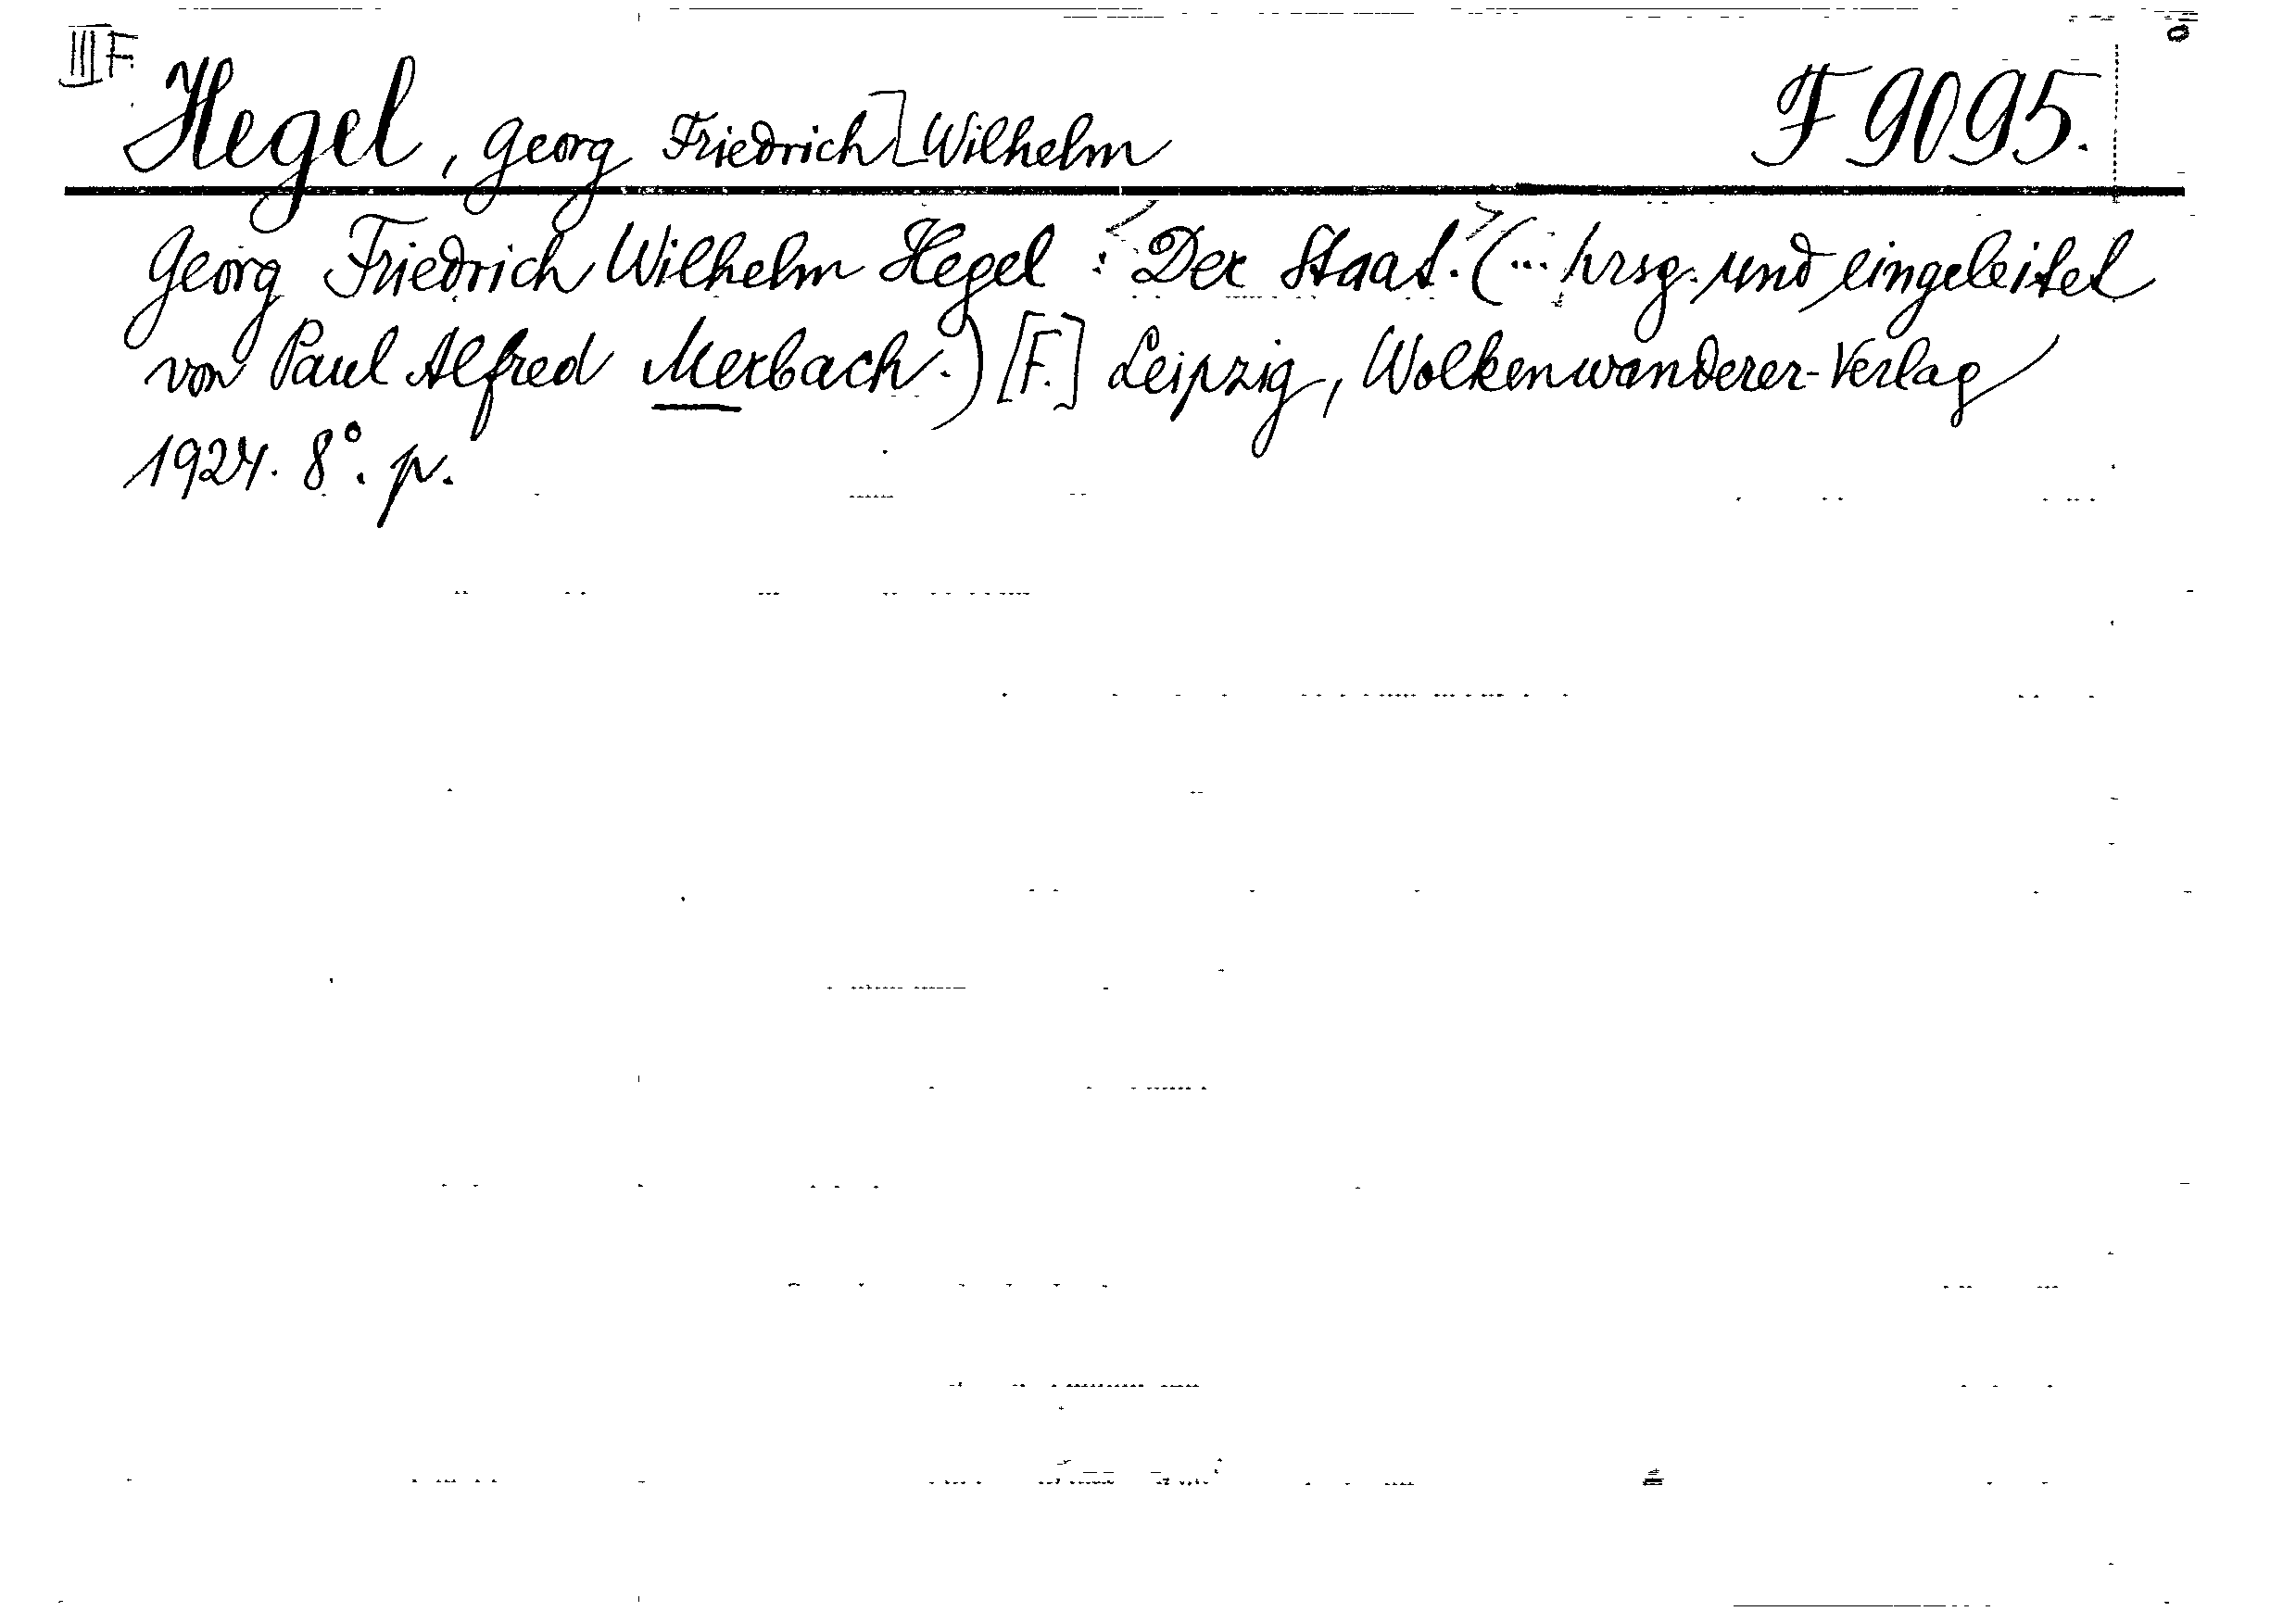 III F.
Hegel, Georg Friedrich] Wilhelm F 9095.
Georg Friedrich Wilhelm Hegel: <Der Staat.> (... hrsg. und eingeleitet
von Paul Alfred Merbach.) [F.] Leipzig, Wolkenwanderer-Verlag
1924. 8°. p.